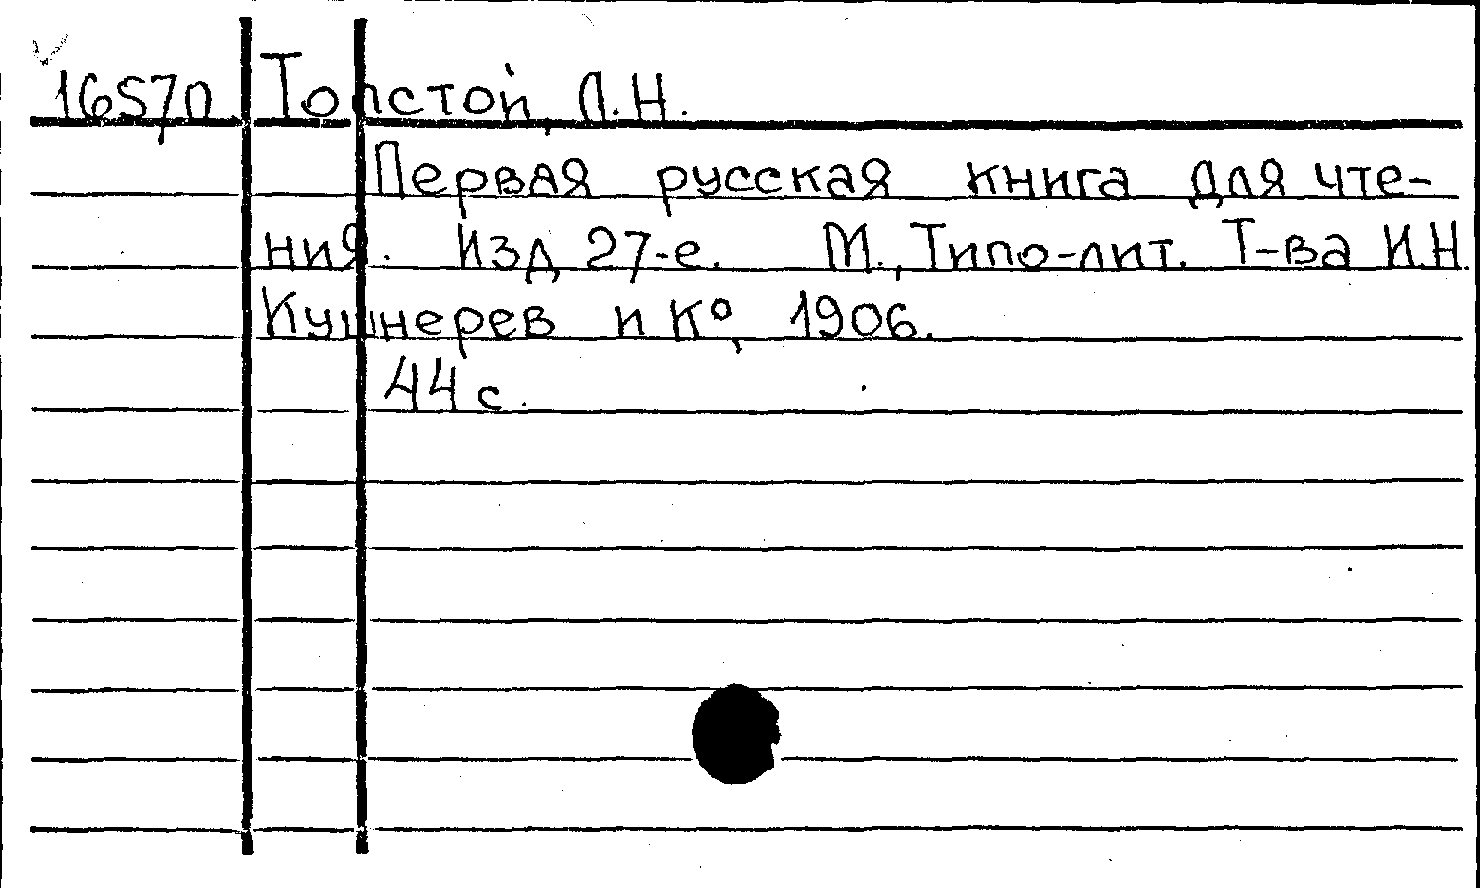 16570 Толстой, Л.Н.
Первая русская книга для чте-
ния. Изд 27-е. М., Типо-лит. Т-ва И.Н.
Кушнерев и К°, 1906.
44 с.